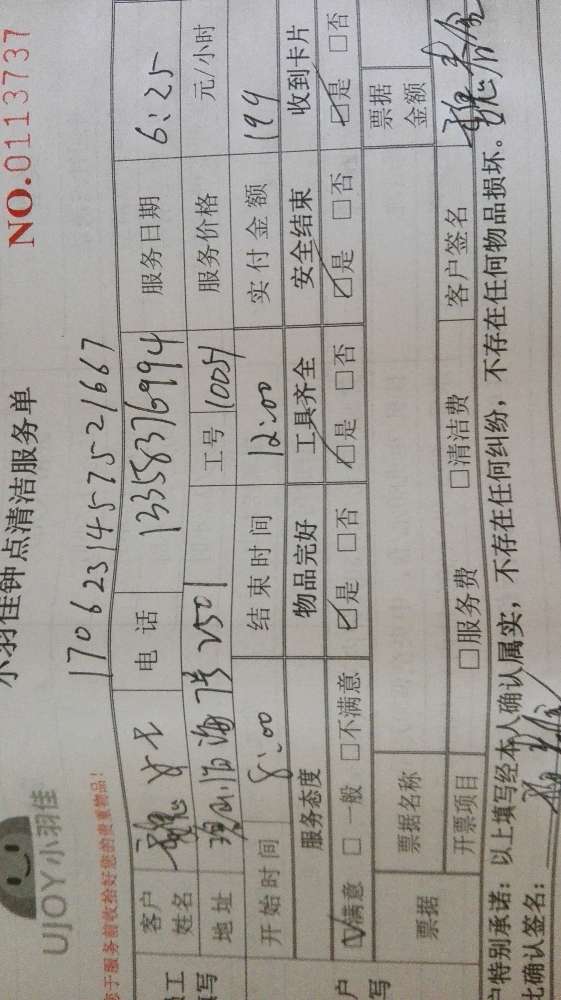 NO.0113737
小羽佳钟点清洁服务单
UJOY小羽佳
于服务前收拾好您的贵重物品!
1706231457521667
客户姓名 魏女士 电话 13358376994 服务日期 6:25
地址 2501 工号 服务价格 元/小时
开始时间 8:00 结束时间 12:00 实付金额 194
服务态度 物品完好 工具齐全 安全结束 收到卡片
☑满意 □一般 □不满意 ☑是 □否 ☑是 □否 ☑是 □否 ☑是 □否
票据 票据名称 票据金额
开票项目 □服务费 □清洁费 客户签名
户特别承诺:以上填写经本人确认属实,不存在任何纠纷,不存在任何物品损坏。
此确认签名: